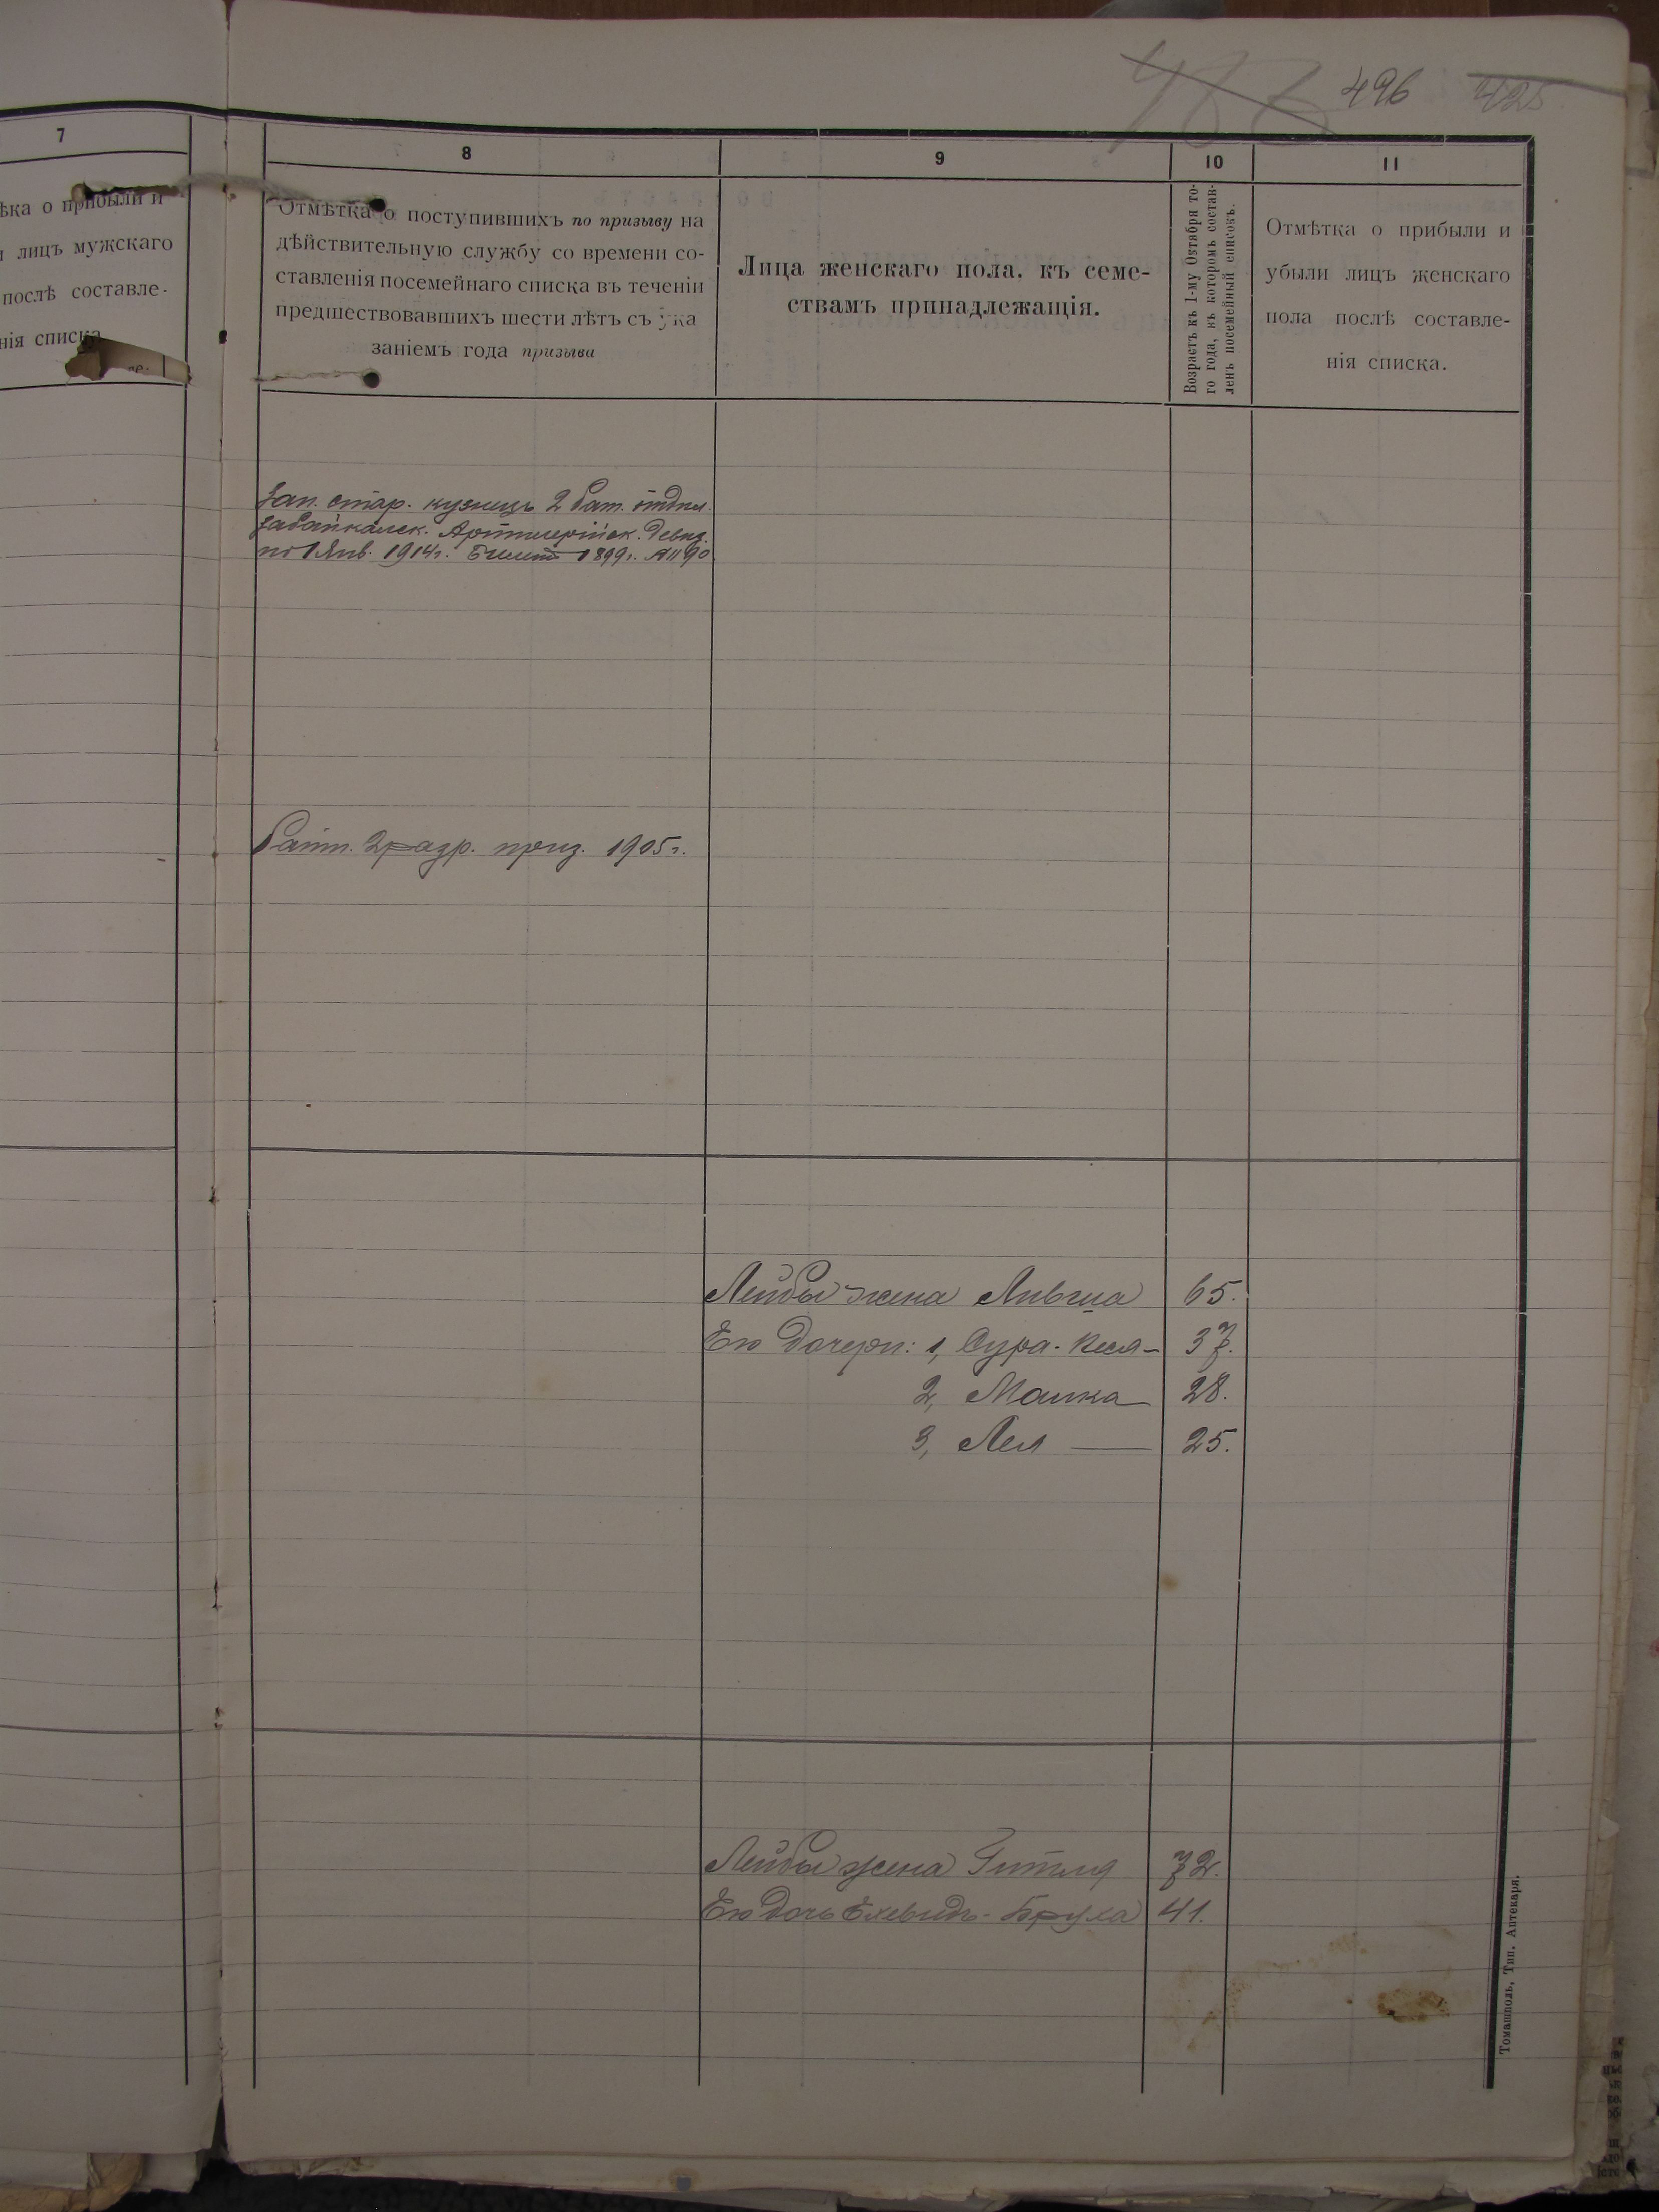 496 425
7
8
9
10
11
ѣка о прибыли и
лицъ мужскаго
послѣ составле-
нія списка
Отмѣтка о поступившихъ по призыву на
дѣйствительную службу со времени со-
ставленія посемейнаго списка въ теченіи
предшествовавшихъ шести лѣтъ съ ука
заніемъ года призыва
Лица женскаго пола. къ семе-
ствамъ принадлежащія.
Возрастъ къ 1-му Октября то-
го года, въ которомъ состав-
ленъ посемейный списокъ.
Отмѣтка о прибыли и
убыли лицъ женскаго
пола послѣ составле-
нія списка.
Зап. стар. кузнецъ 2 бат. отдѣл.
Забайкалск. Артиллерійск. Девиз.
по 1 Янв. 1914г. Билетъ 1899г.
Ратн. 2 разр. приз. 1905г.
Лейбы жена Ливша 65.
Его дочери: 1, Сура- 37.
2, Малка 28.
3, Лея 25.
Лейбы жена Гитля 72.
Его дочь Ехевидъ-Бруха 41.
Томашполь, Тип. Аптекаря.